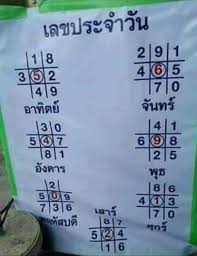 เลขประจำวัน
1 8
3 5 2
4 9
อาทิตย์
2 9 1
4 6 5
7 0
จันทร์
3 0
5 4 7
8 1
อังคาร
4 1
6 9 8
2 5
พุธ
2
5 0 9
7 3 6
หัสบดี
8 6
4 1 3
7 0
ศุกร์
เสาร์
8 7
5 2 4
1 6